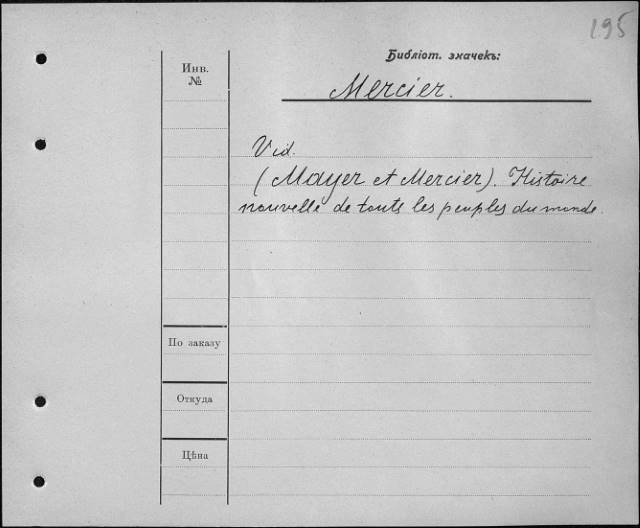 195
Библіот. значекъ:
Инв.
№
Mercier.
Vid.
(Mayer et Mercier). Histoire
nouvelle de touts les peuples du monde.
По заказу
Откуда
Цѣна